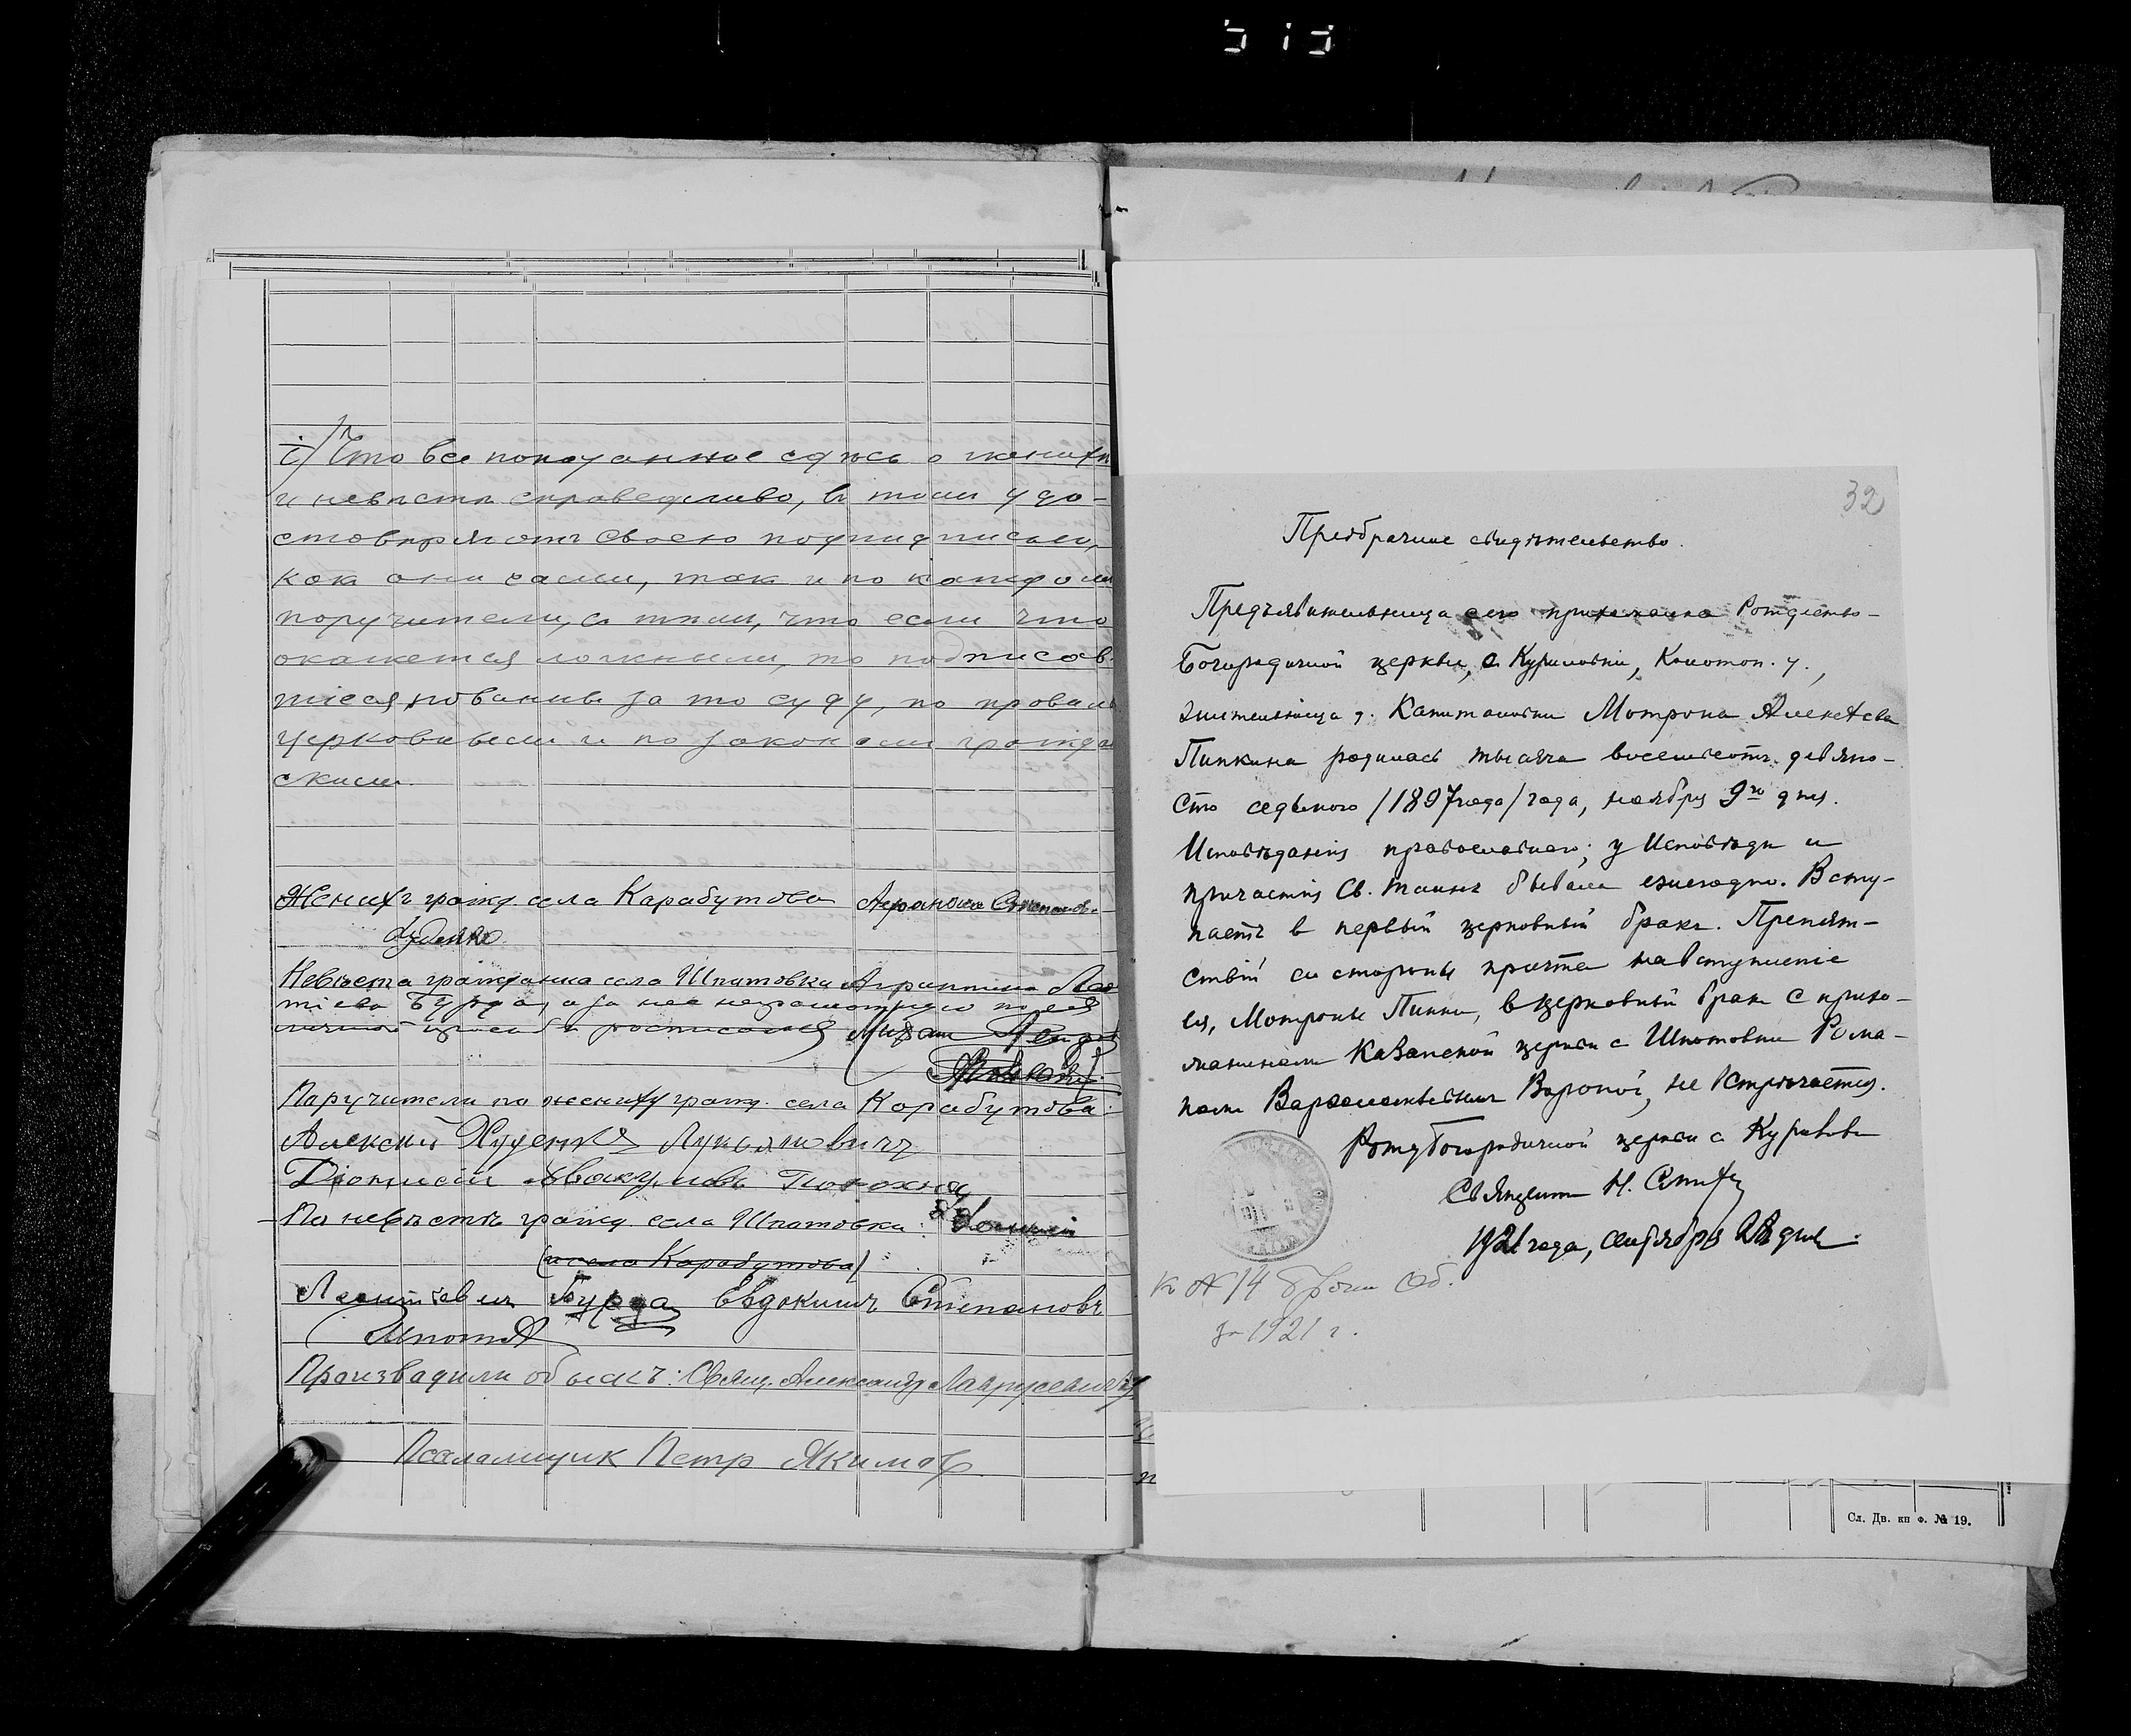 і) Что все показанное здѣсь о женихѣ
и невѣстѣ справедливо, въ томъ удо-
стовѣряютъ своею подписью,
как они сами, так и по каждом
поручители, съ тѣмъ, что если что
окажется ложнымъ, то подписав-
шіеся повинны за то суду, по правил
церковнымъ и по законамъ граждан
скимъ.
Женихъ гражд. села Карабутова Афанасій Степановъ
Невѣста гражданка села Шпатовки Агриппина Леон
тіева Бурда, а за нея неграмотную по ея
личной просьбѣ росписался
Поручители по жениху гражд. села Карабутова:
Алексій Худенко Лукьяновичъ
Діонисій Аввакумовъ
По невѣстѣ гражд. села Шпатовки:
(и села Карабутова)
Бурда Евдокимъ Степановъ
Производили обыскъ: Свящ. Александр Лаврусевичъ
Псаломщик Петр Якимов
32
Предбрачное свидѣтельство.
Предъявительница сего прихожанка Рождество-
Богородичной церкви, с Куриловки, Конотоп. у.,
жительница д. Капитановки Мотрона Алексѣева
Пинкина родилась тысяча восемьсотъ девяно-
сто седьмого /1897 года/ года, ноября 9го дня.
Исповѣданія православнаго; у Исповѣди и
причастія Св. таинъ бывала ежегодно. Всту-
паетъ в первый церковный бракъ. Препят-
ствій со стороны причта на вступленіе
ея, Мотроны Пинки, в церковный брак с прихо-
жаниномъ Казанской церкви с Шпотовки Рома-
номъ Варѳоломѣевымъ Вороной, не встрѣчается.
Рожд Богородичной церкви с
Священникъ Н.
1921 года, сентября дня.
к № 14 брачн Об.
за 1921 г.
Сл. Дв. кн ф. № 19.